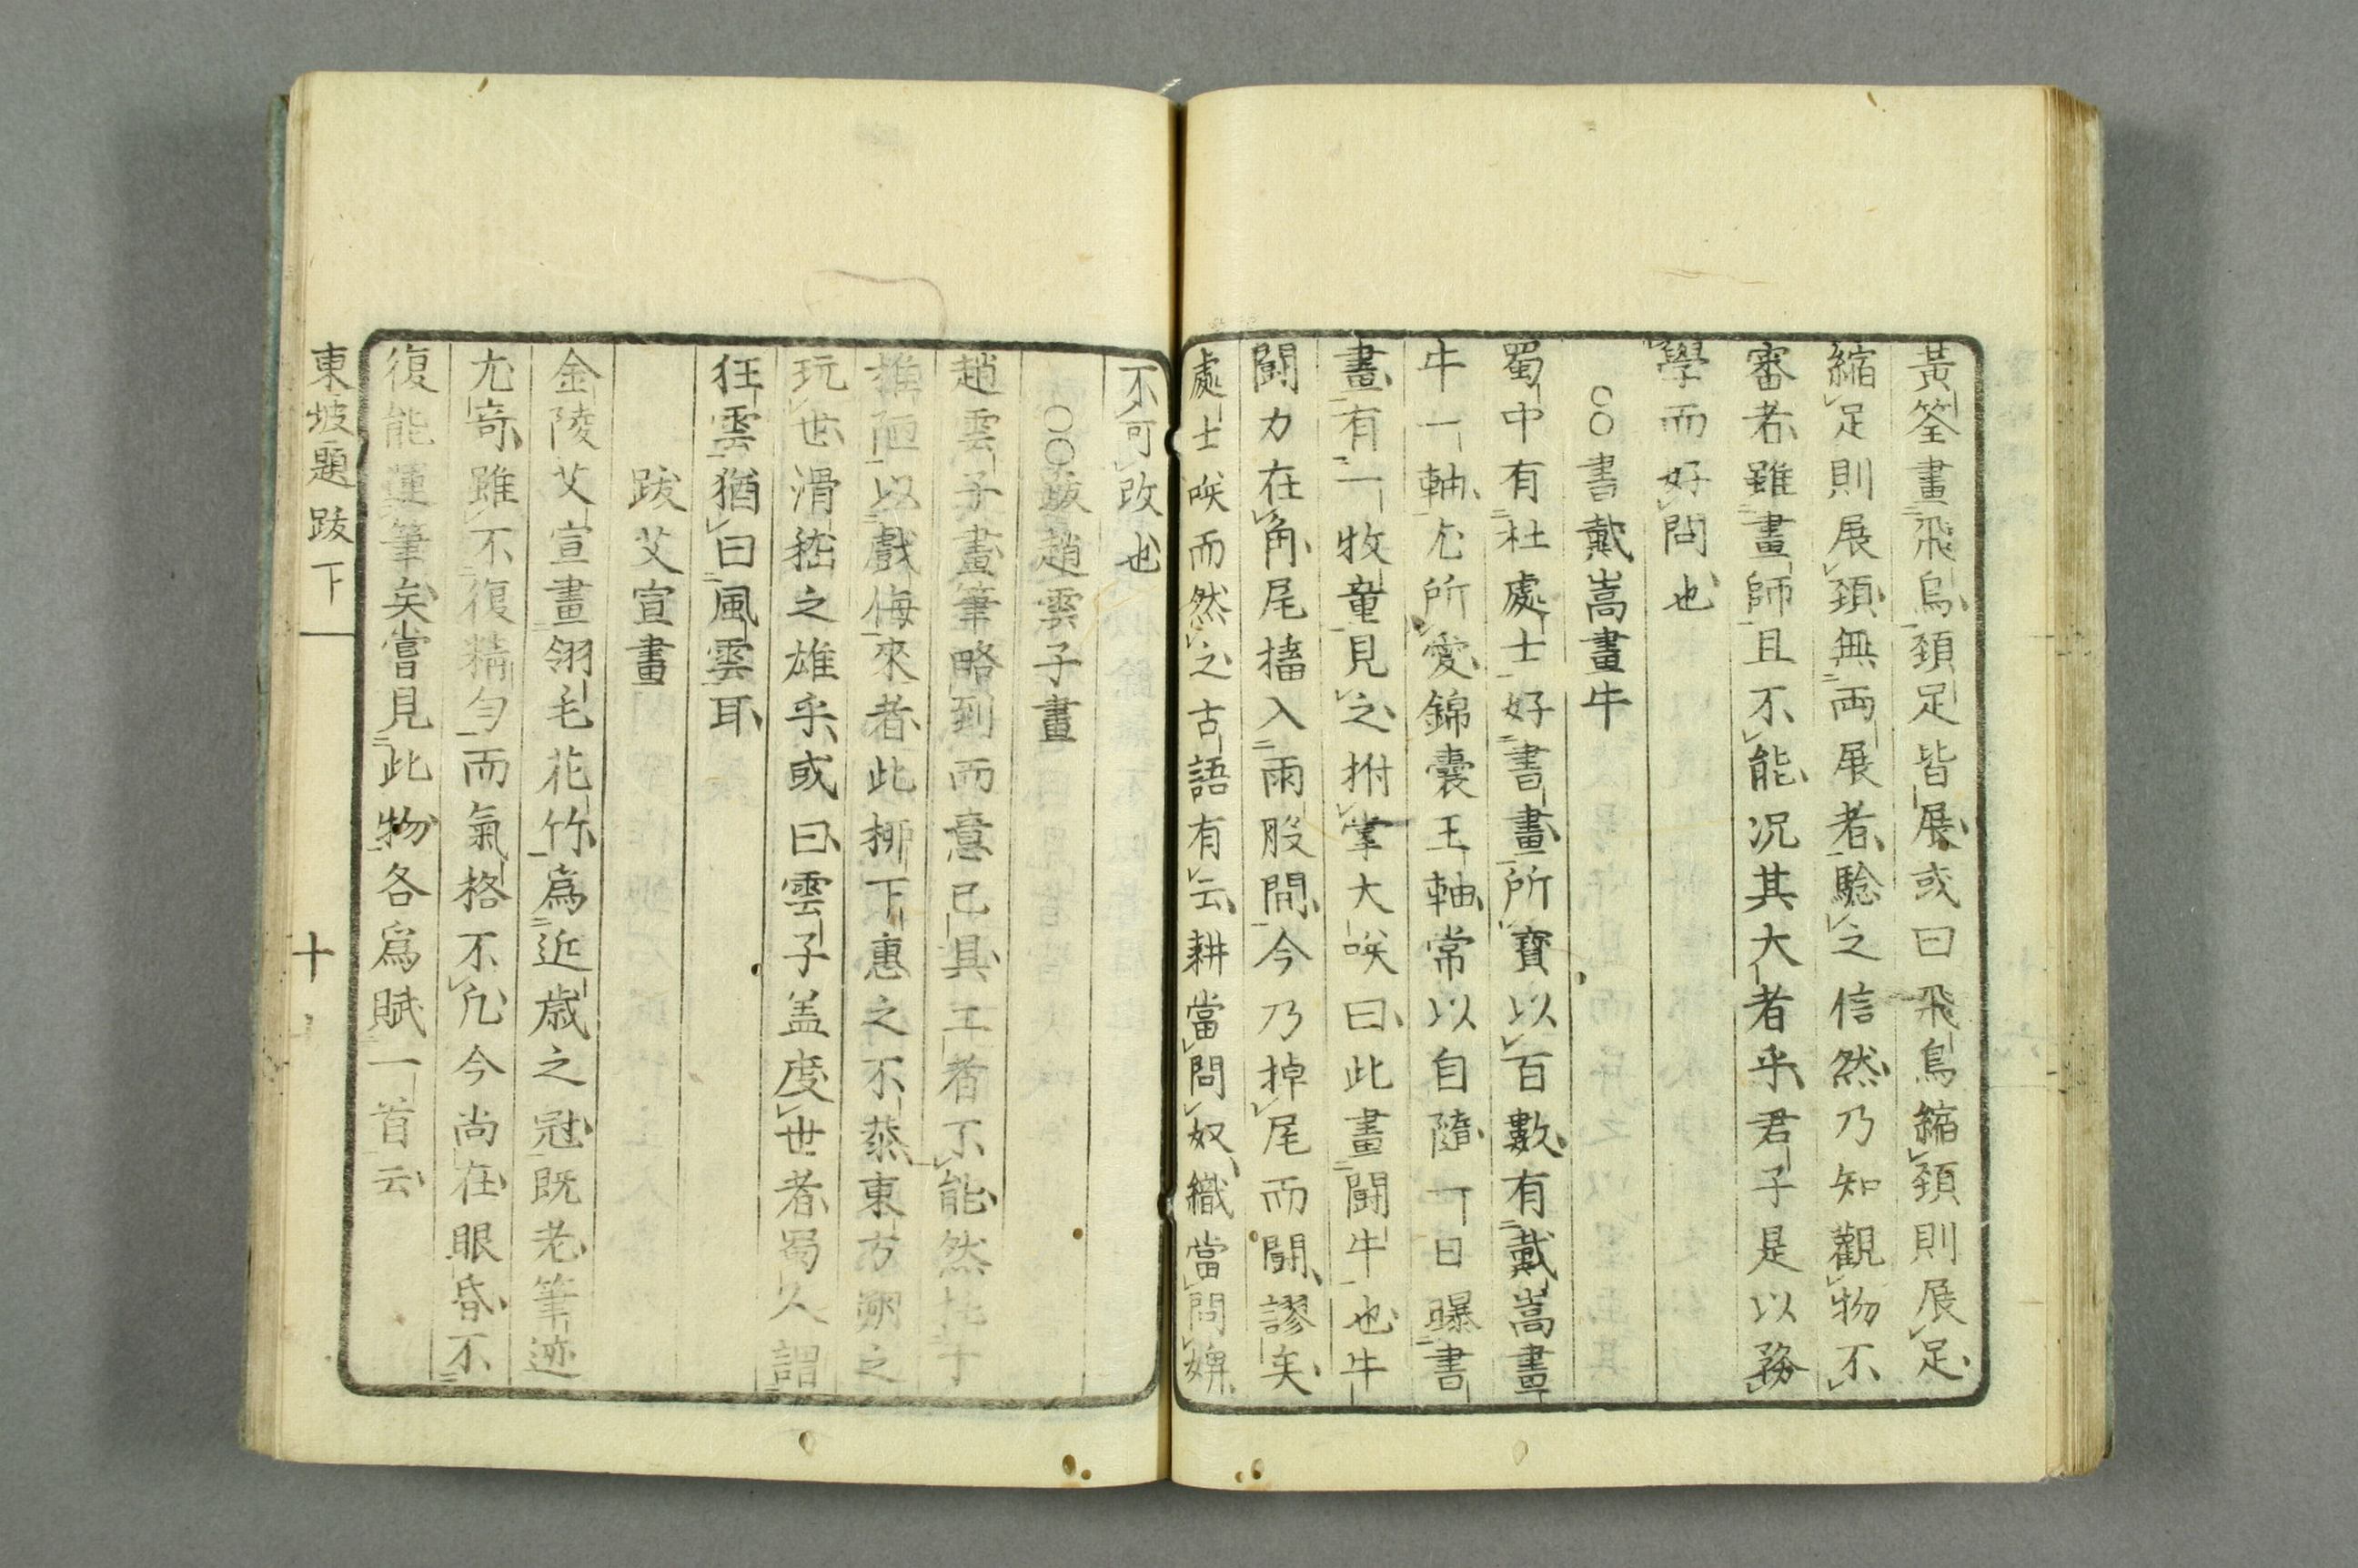 黃筌畫飛鳥頚足皆展或曰飛鳥縮頚則展足
縮足則展頚無両展者騐之信然乃知觀物不
審者雖畫師且不能况其大者乎君子是以務
學而好問也
○○書戴嵩畫牛
蜀中有杜處士好書畫所寶以百數有戴嵩畫
牛一軸尤所愛錦囊玉軸常以自隨一日曝書
畫有一牧童見之拊掌大咲曰此畫闘牛也牛
闘力在角尾搐入兩股間今乃掉尾而闘謬矣
處士咲而然之古語有云耕當問奴織當問婢
不可改也
○○跋趙雲子畫
趙雲子畫筆略到而意已具工者不能然托于
椎陋以戲侮來者此柳下惠之不恭東方朔之
玩世滑稽之雄乎或曰雲子盖度世者蜀人謂
狂雲猶曰風雲耳
跋艾宣畫
金陵艾宣畫翎毛花竹爲近歳之冠既老筆迹
尤奇雖不復精勻而氣格不凡今尚在眼昏不
復能運筆矣嘗見此物各爲賦一首云
東坡題跋下
十